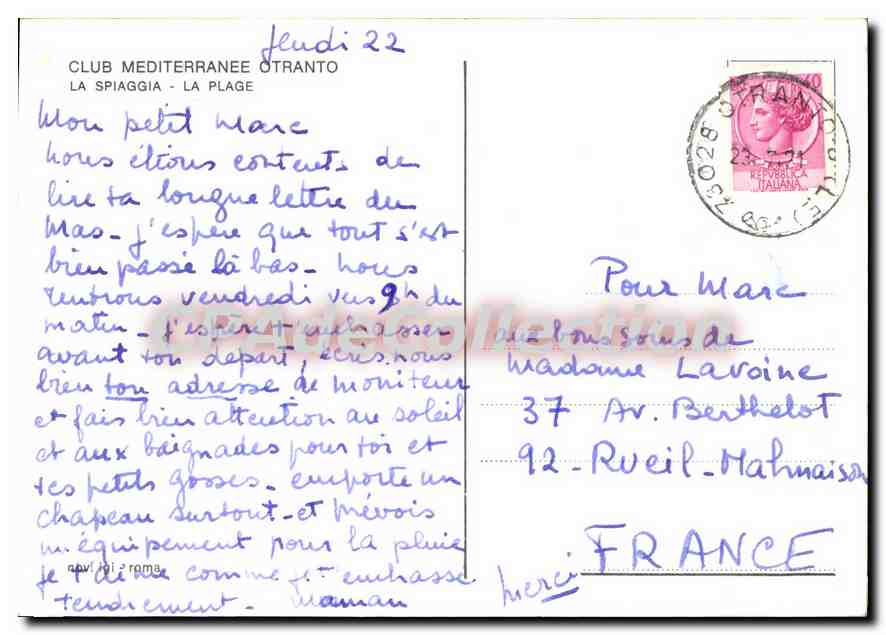 Jeudi 22
CLUB MEDITERRANEE OTRANTO
LA SPIAGGIA - LA PLAGE
Mon petit Marc
nous étions contents de
lire ta longue lettre du
Mas - j'espère que tout s'est
bien passé là bas - nous
rentrons vendredi vers 9h du
matin - j'espère t'embrasser
avant ton départ, écris nous
bien ton adresse de moniteur
et fais bien attention au soleil
et aux baignades pour toi et
tes petits gosses - emporte un
chapeau surtout - et prévois
équipement pour la pluie
novi - roma
je t'aime comme je t'embrasse
tendrement - maman
73028 OTRANTO (LE)
REPVBBLICA
ITALIANA
Pour Marc
aux bons soins de
Madame Lavoine
37 Av. Berthelot
92 - Rueil-Malmaison
FRANCE
merci
CPADeCollection